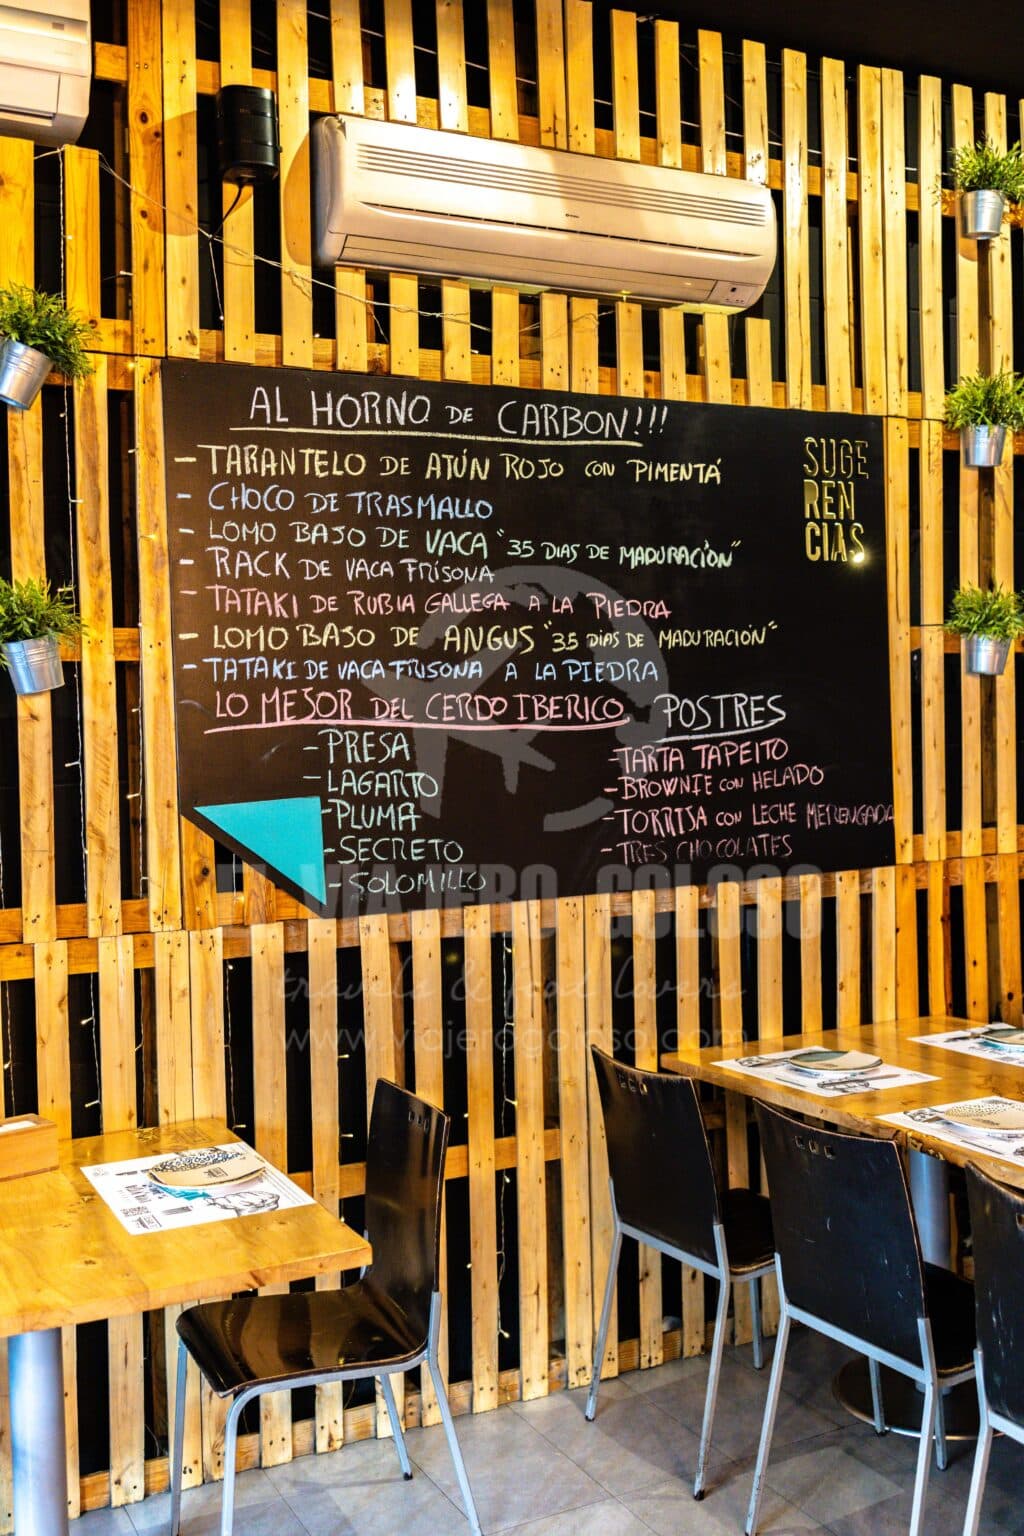 AL HORNO DE CARBON!!!
SUGE
REN
CIAS
- TARANTELO DE ATÚN ROJO CON PIMENTÁ
- CHOCO DE TRASMALLO
- LOMO BAJO DE VACA "35 DIAS DE MADURACIÓN"
- RACK DE VACA FRISONA
- TATAKI DE RUBIA GALLEGA A LA PIEDRA
- LOMO BAJO DE ANGUS "35 DIAS DE MADURACIÓN"
- TATAKI DE VACA FRISONA A LA PIEDRA
LO MEJOR DEL CERDO IBERICO
- PRESA
- LAGARTO
- PLUMA
- SECRETO
- SOLOMILLO
POSTRES
- TARTA TAPEITO
- BROWNIE CON HELADO
- TORRIJA CON LECHE MERENGADA
- TRES CHOCOLATES
EL VIAJERO GOLOSO
travels & food lovers
www.viajerogoloso.com